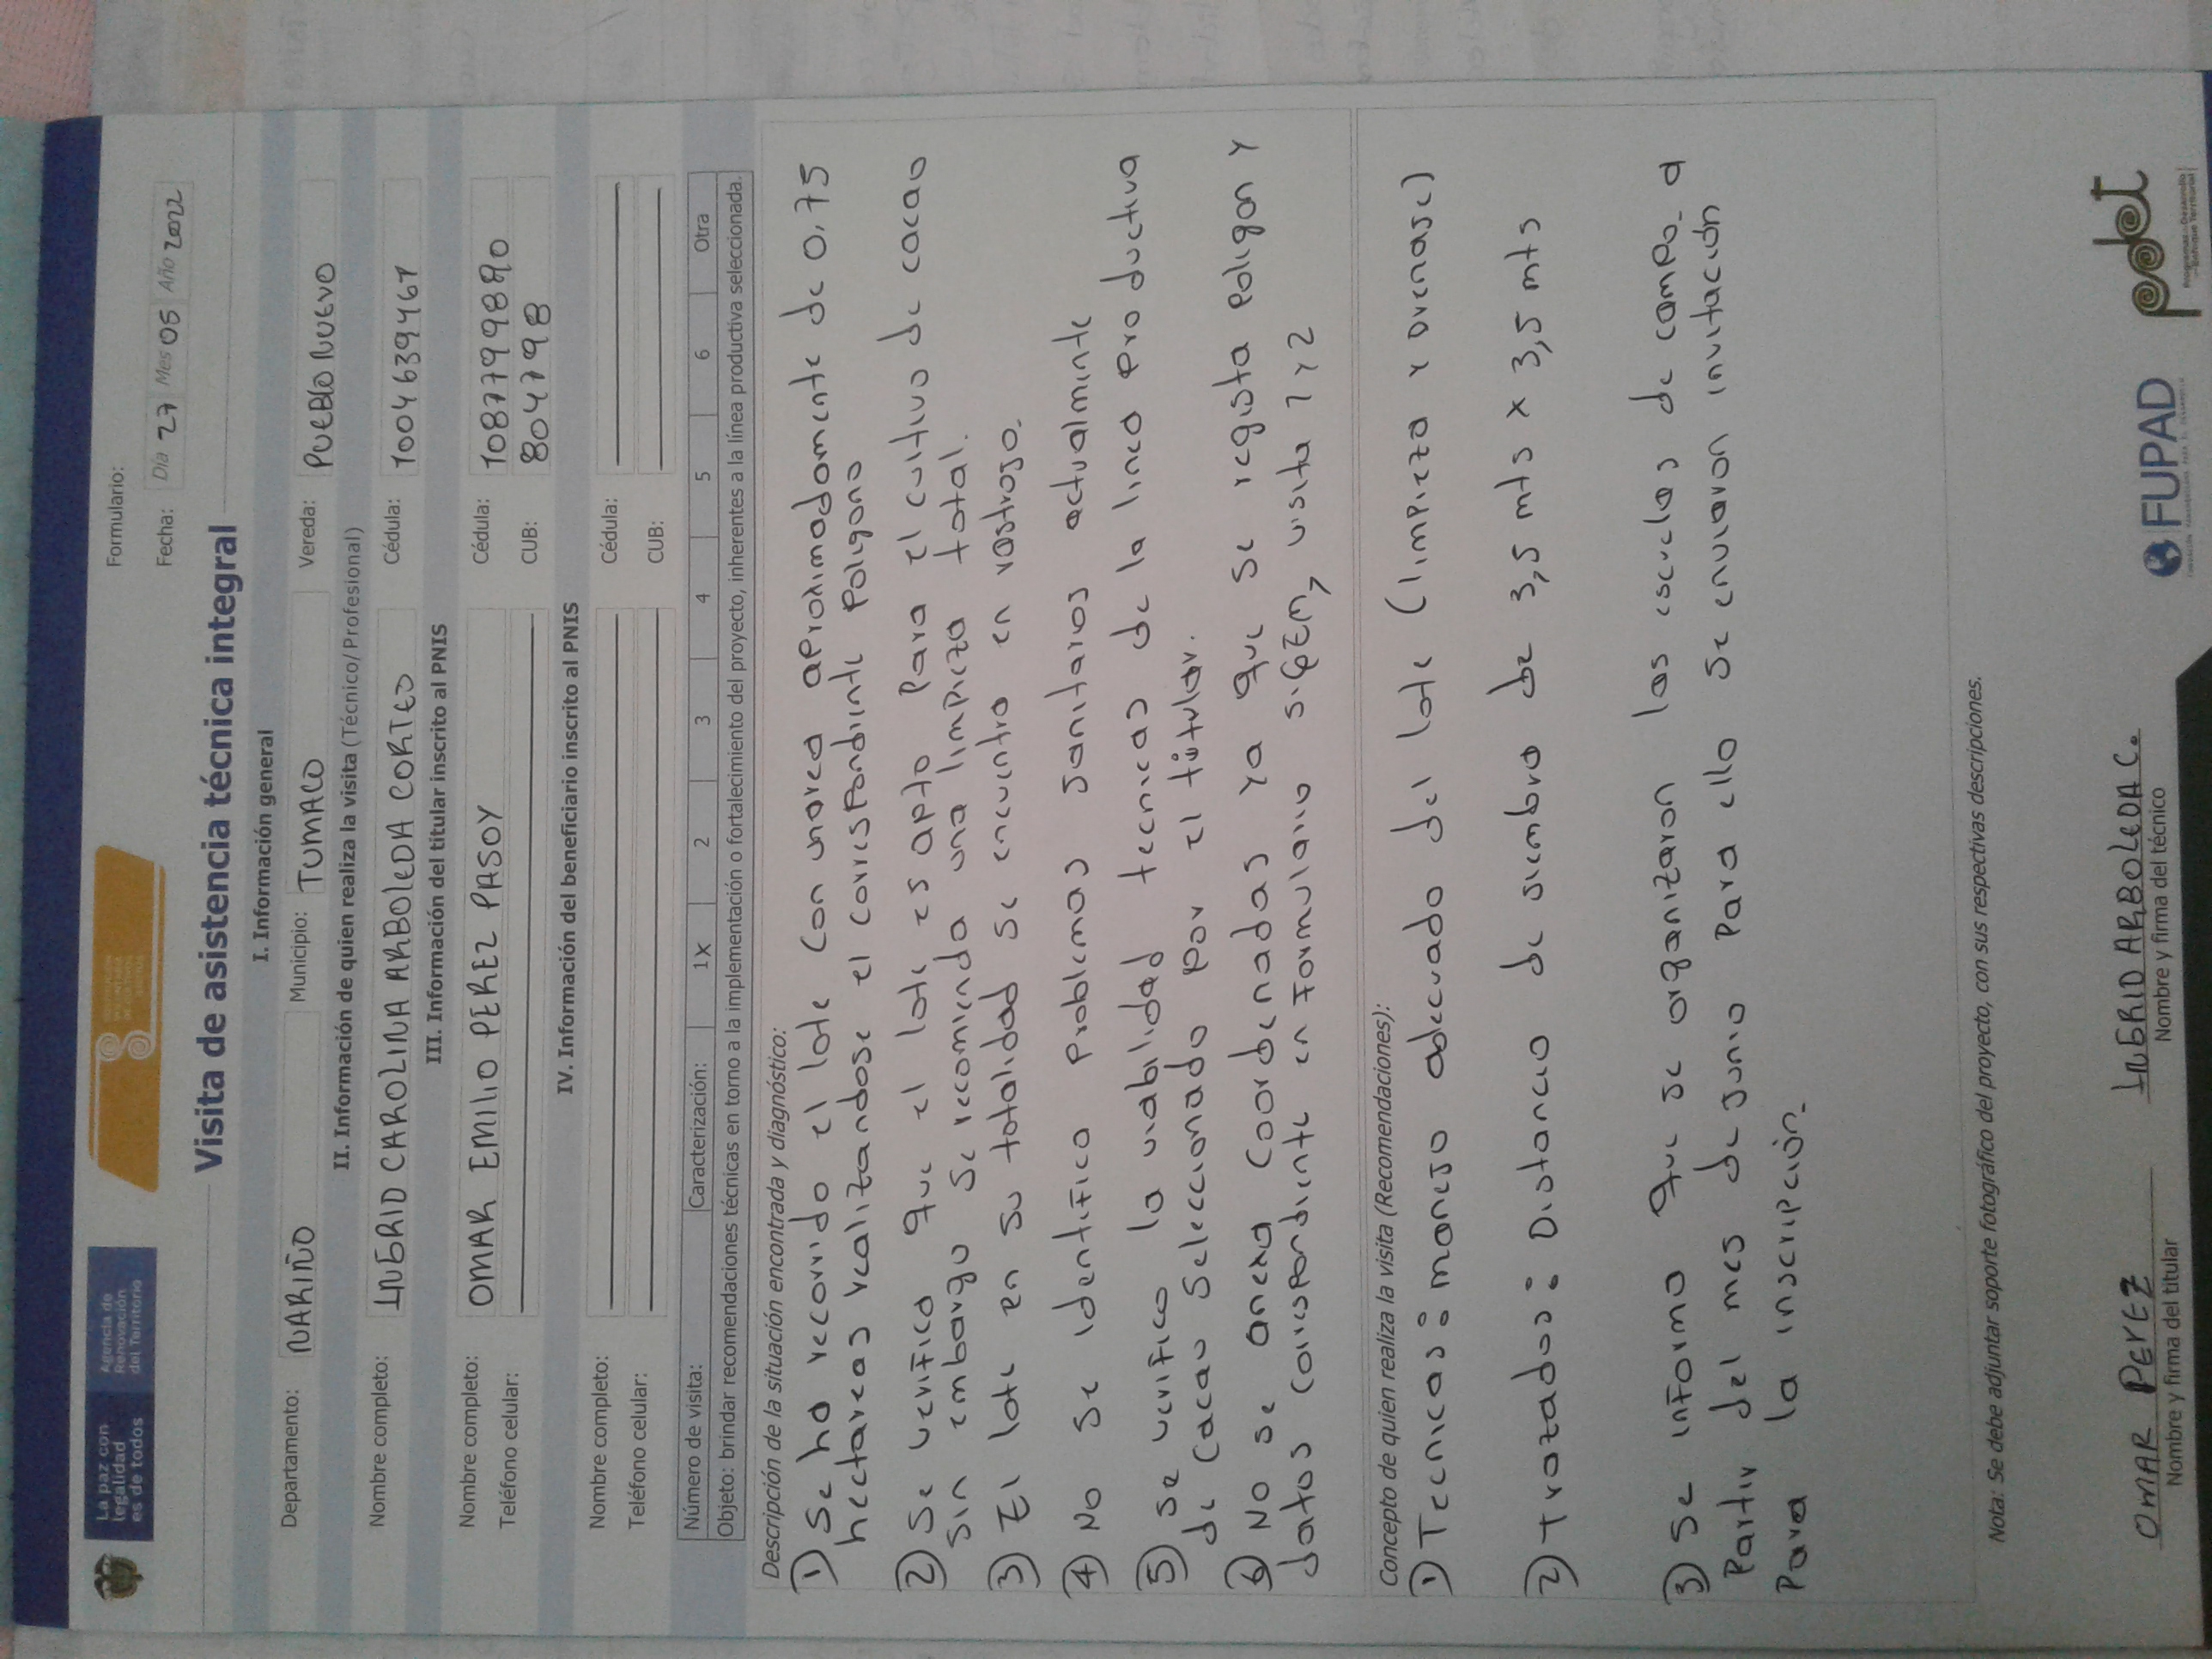 La paz con
legalidad
es de todos
Agencia de
Renovación
del Territorio
Formulario:
Fecha: Día 27 Mes 05 Año 2022
Visita de asistencia técnica integral
I. Información general
Departamento: NARIÑO Municipio: TUMACO Vereda: PUEBLO NUEVO
II. Información de quien realiza la visita (Técnico/Profesional)
Nombre completo: INGRID CAROLINA ARBOLEDA CORTES Cédula: 1004639461
III. Información del titular inscrito al PNIS
Nombre completo: OMAR EMILIO PEREZ PASOY Cédula: 1087799890
Teléfono celular: CUB: 804798
IV. Información del beneficiario inscrito al PNIS
Nombre completo: Cédula:
Teléfono celular: CUB:
Número de visita: Caracterización: 1X 2 3 4 5 6 Otra
Objeto: brindar recomendaciones técnicas en torno a la implementación o fortalecimiento del proyecto, inherentes a la línea productiva seleccionada.
Descripción de la situación encontrada y diagnóstico:
1) Se ha recorrido el lote con unarea aproximadamente de 0,75
hectareas realizandose el correspondiente poligono
2) Se verifico que el lote es apto para el cultivo de cacao
sin embargo se recomienda una limpieza total.
3) El lote en su totalidad se encuentra en rastrojo.
4) No se identifico problemas sanitarios actualmente
5) se verifico la viabilidad tecnicas de la linea productiva
de cacao seleccionado por el titular.
6) No se anexa coordenadas ya que se registra poligon y
datos correspondiente en formulario SIGEM, visita 1 y 2
Concepto de quien realiza la visita (Recomendaciones):
1) Tecnicas: manejo adecuado del lote (limpieza y Drenase)
2) trazados: Distancia de siembra de 3,5 mts x 3,5 mts
3) Se informo que se organizaron las escuelas de campo a
Partir del mes de junio Para ello se enviaron invitación
Para la inscripción.
Nota: Se debe adjuntar soporte fotográfico del proyecto, con sus respectivas descripciones.
OMAR PEREZ
Nombre y firma del titular
INGRID ARBOLEDA C.
Nombre y firma del técnico
FUPAD
pdet
Programas de Desarrollo
con Enfoque Territorial